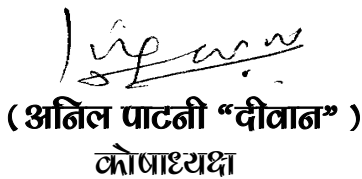 ( अनिल पाटनी “दीवान” )
कोषाध्यक्ष